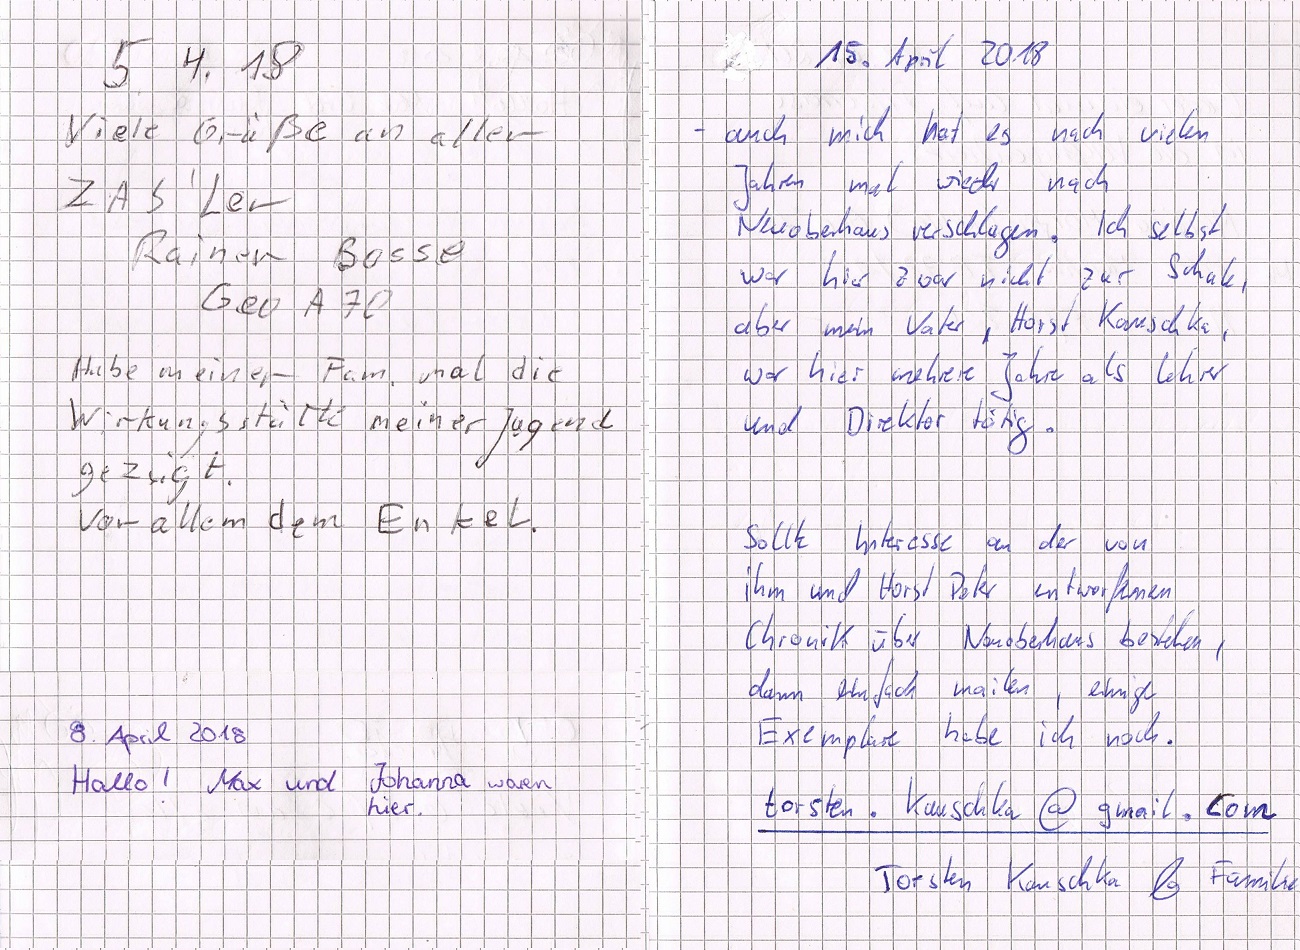 5. 4. 18
Viele Grüße an aller
ZAS'Ler
Rainer Bosse
Geo A 70
Habe meiner Fam. mal die
Wirkungsstätte meiner Jugend
gezeigt.
Vor allem dem Enkel.
8. April 2018
Hallo! Max und Johanna waren
hier.
15. April 2018
- auch mich hat es nach vielen
Jahren mal wieder nach
Neuoberhaus verschlagen. Ich selbst
war hier zwar nicht zur Schule,
aber mein Vater, Horst Kauschka,
war hier mehrere Jahre als Lehrer
und Direktor tätig.
Sollte Interesse an der von
ihm und Horst Peter entworfenen
Chronik über Neuoberhaus bestehen,
dann einfach mailen, einige
Exemplare habe ich noch.
torsten.kauschka@gmail.com
Torsten Kauschka & Familie